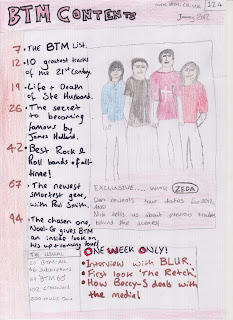 BTM CONTENTS
124
January 2012
7 • THE BTM List.
12. 10 greatest tracks
of the 21st Century.
19. Life + Death
of Ste Husband.
26. The secret
to becoming
famous by
James Holland.
42. Best Rock &
Roll bands of all-
time!
67. The newest
smartest gear,
with Phil Smith.
94. The chosen one,
Noel-G gives BTM
an inside look on
his upcoming tour!
EXCLUSIVE.... with ZEDA
Dan reveals tour dates for 2012,
Nick tells us about previous troubles
behind the scenes!
THE USUAL
46 Subscriptions
67 BTM 60
102 crossword
ONE WEEK ONLY!
• Interview with BLUR.
• First look 'The Retch'.
• How Beccy-S deals with
the media!